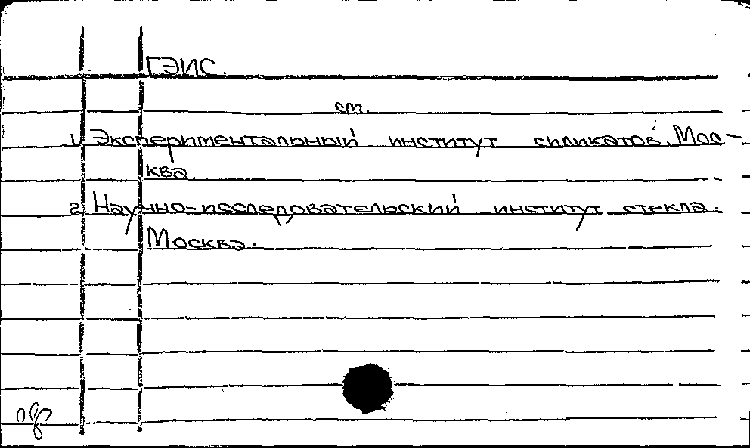 ГЭИС
ст.
1. Экспериментальный институт силикатов. Мос-
ква
2. Научно-исследовательский институт стекла.
Москва.